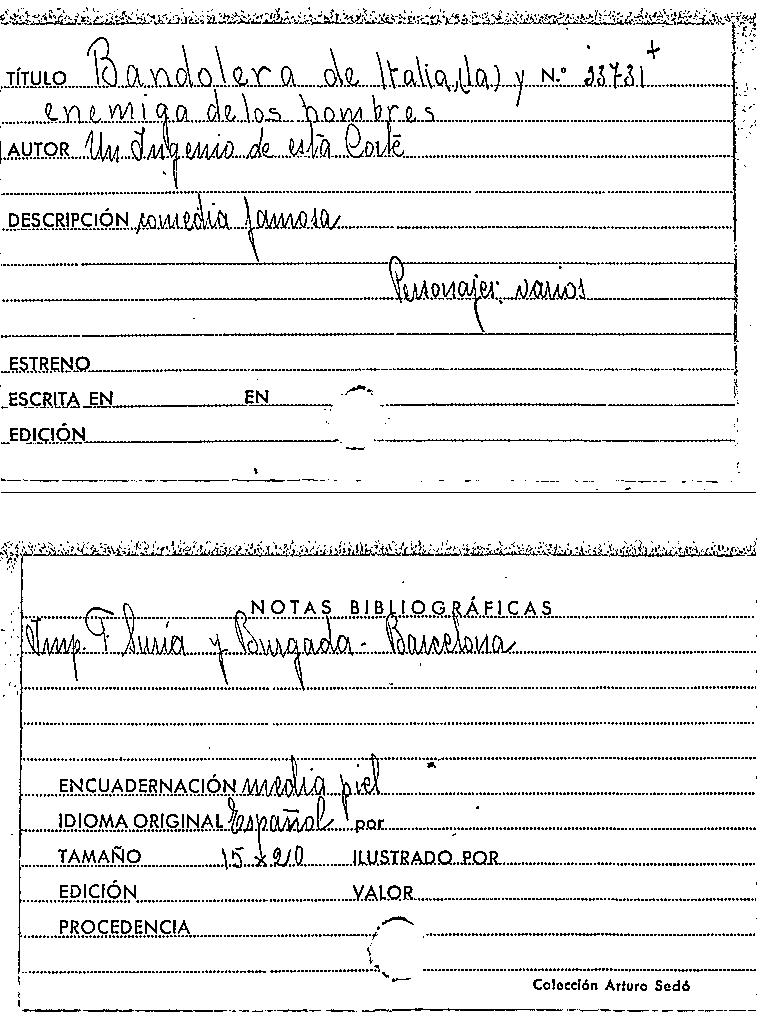 TÍTULO Bandolera de Italia, (la) y N.º 33731 +
enemiga de los hombres
AUTOR Un Ingenio de esta Corte
DESCRIPCIÓN comedia famosa
Personajes: varios
ESTRENO
ESCRITA EN EN
EDICIÓN
NOTAS BIBLIOGRÁFICAS
Imp. F. Suria y Burgada - Barcelona
ENCUADERNACIÓN media piel
IDIOMA ORIGINAL Español por
TAMAÑO 15 x 20 ILUSTRADO POR
EDICIÓN VALOR
PROCEDENCIA
Colección Arturo Sedó